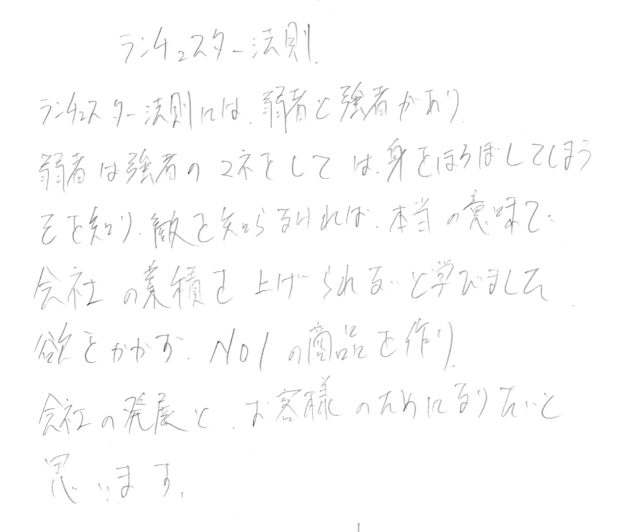 ランチェスター法則
ランチェスター法則には、弱者と強者があり
弱者は強者のマネをしては、身をほろぼしてしまう
己を知り、敵を知らなければ、本当の意味で
会社の業績を上げられないと学びました
欲をかかず、NO1の商品を作り
会社の発展と、お客様のためになりたいと
思います。